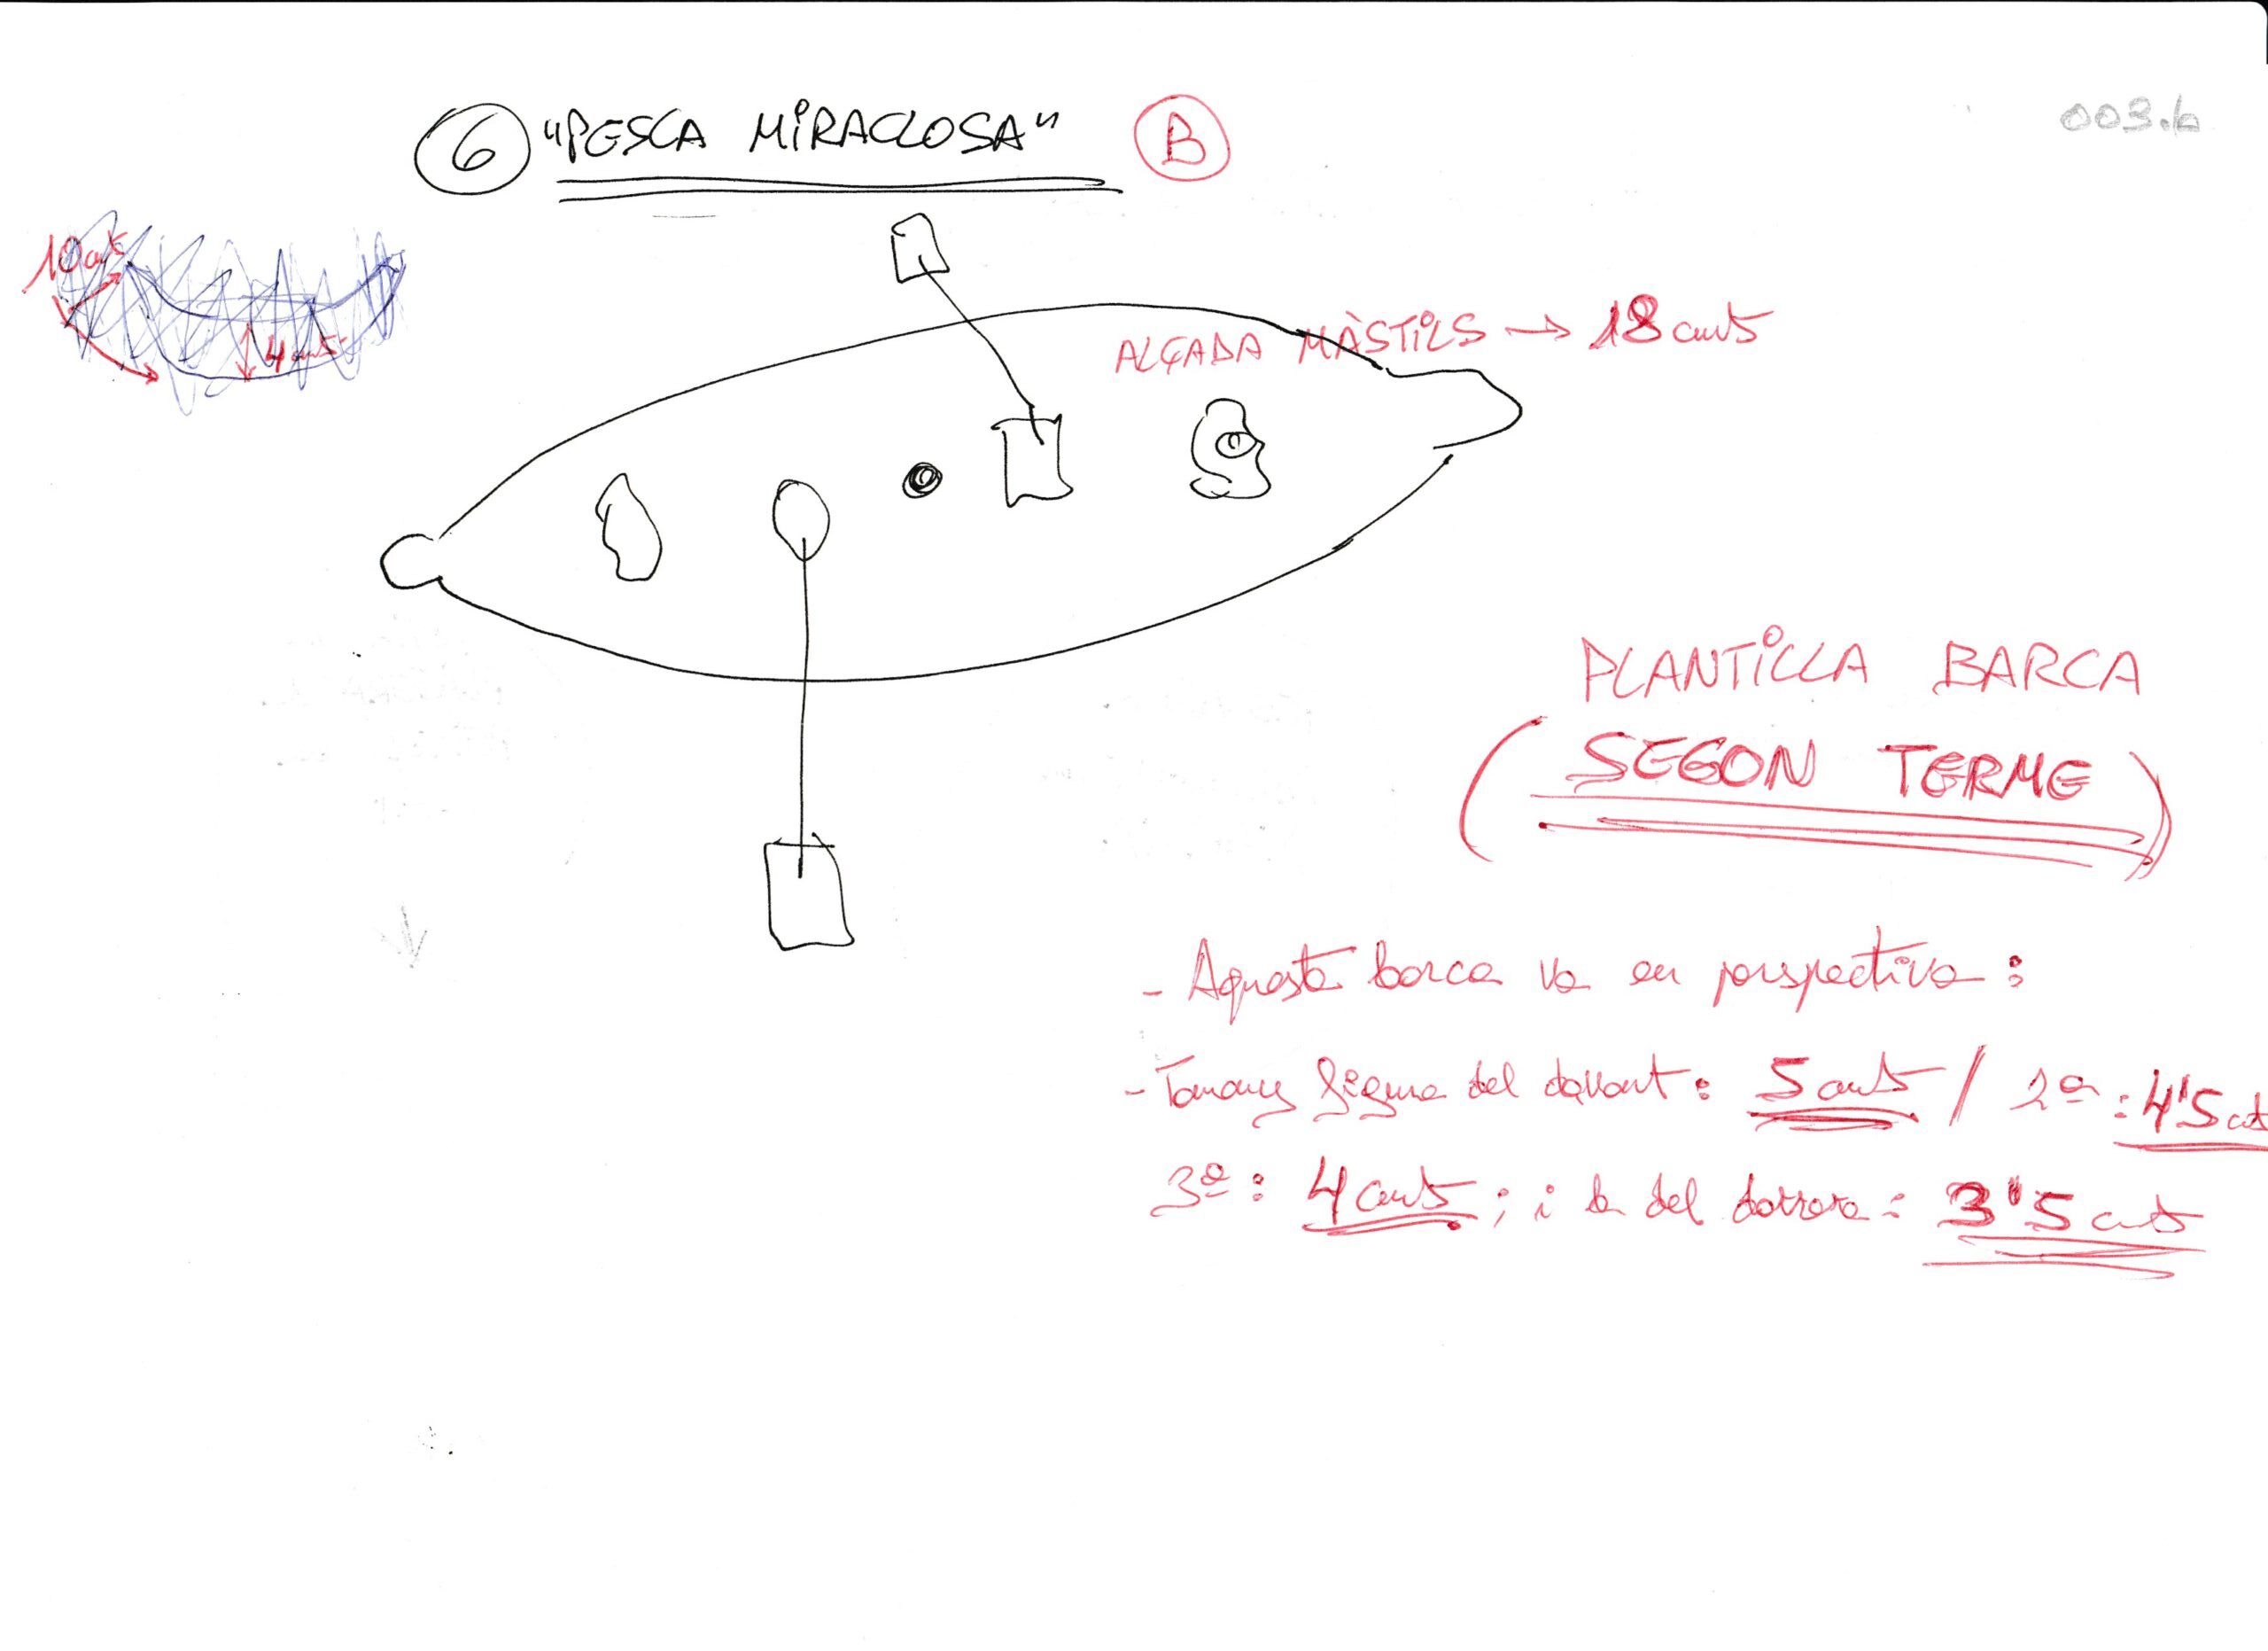 003.b
6 "PESCA MiRACLOSA" B
10 cmts
4 cmts
ALÇADA MÀSTiLS → 18 cmts
PLANTiLLA BARCA
(SEGON TERME)
- Aquesta barca va en perspectiva:
- Tamany figura del davant: 5 cmts / 2ª: 4'5 cmt
3ª: 4 cmts; i la del darrera: 3'5 cmts